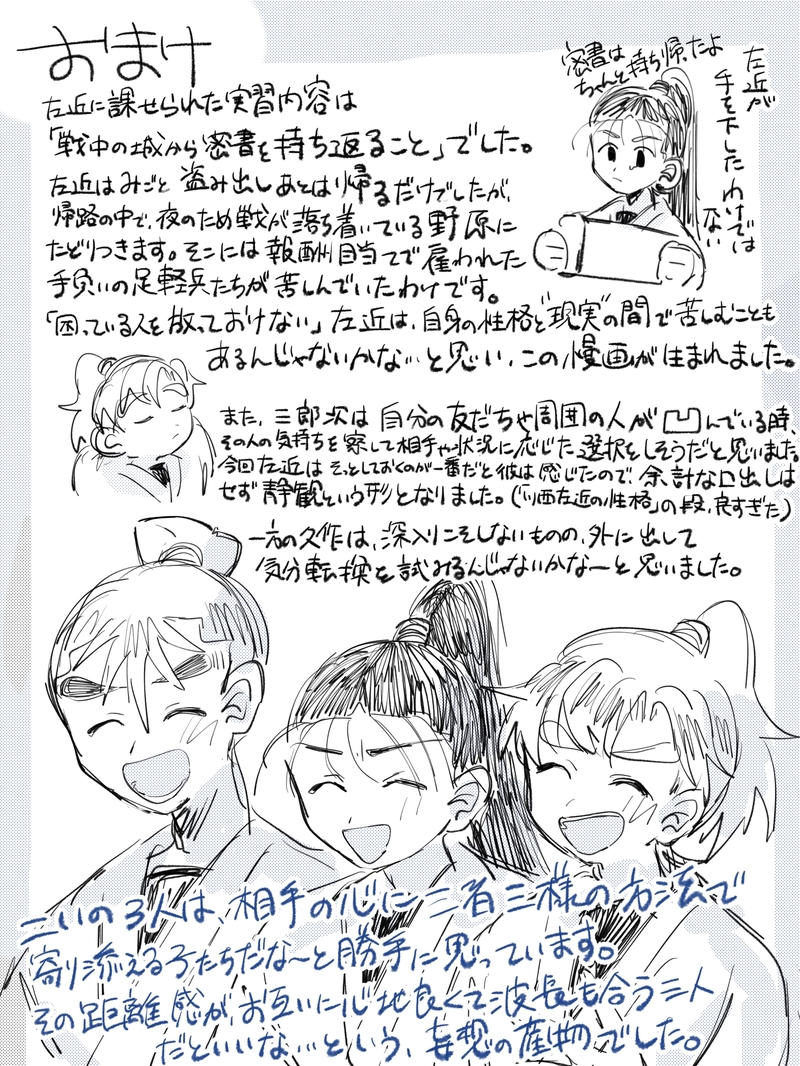 おまけ
左近に課せられた実習内容は
「戦中の城から密書を持ち返ること」でした。
左近はみごと盗み出しあとは帰るだけでしたが、
帰路の中で、夜のため戦が落ち着いている野原に
たどりつきます。そこには報酬目当てで雇われた
手負いの足軽兵たちが苦しんでいたわけです。
「困っている人を放っておけない」左近は、自身の性格と"現実"の間で苦しむことも
あるんじゃないかな…と思い、この漫画が生まれました。
密書は
ちゃんと持ち帰ったよ
左近が
手を下したわけでは
ない
また、三郎次は自分の友だちや周囲の人が凹んでいる時、
その人の気持ちを察して相手や状況に応じた選択をしそうだと思いました。
今回左近はそっとしておくのが一番だと彼は感じたので、余計な口出しは
せず静観という形となりました。(「川西左近の性格」の段、良すぎた)
一方の久作は、深入りこそしないものの、外に出して
気分転換を試みるんじゃないかなーと思いました。
二いの3人は、相手の心に三者三様の方法で
寄り添える子たちだな〜と勝手に思っています。
その距離感が、お互いに心地良くて波長も合う三人
だといいな…という、妄想の産物でした。